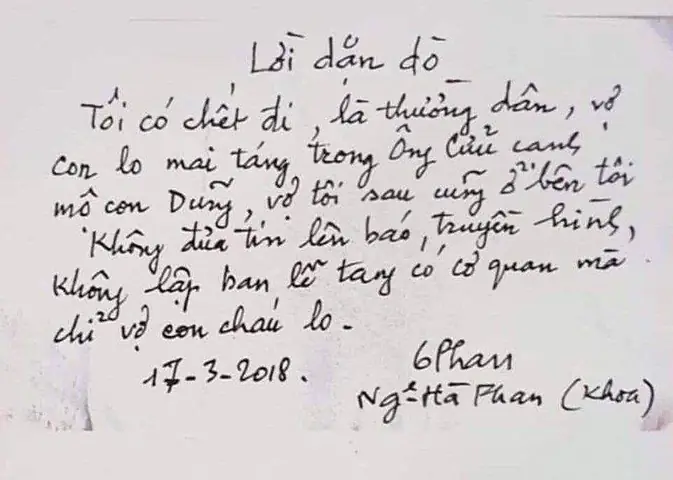 Lời dặn dò
Tôi có chết đi, là thường dân, vợ
con lo mai táng trong Ông Cửu cạnh
mộ con Dũng, vợ tôi sau cũng ở bên tôi
Không đưa tin lên báo, truyền hình,
không lập ban lễ tang có cơ quan mà
chỉ vợ con cháu lo.
17-3-2018.
6Phan
Ngễn Hà Phan (Khoa)